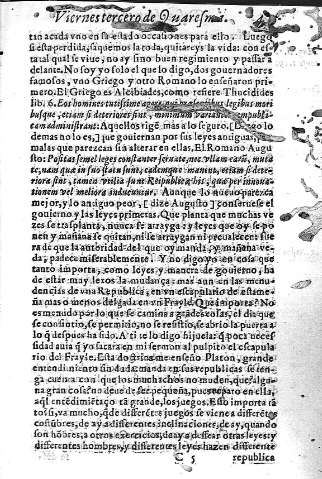 Viernes tercero de Quaresma.
tan acada vno en su estado occasiones para ello. Luego
si esta perdida, saquemos la toda, quitar eys la vida: con es-
ta tal qual se viue, no ay sino buen regimiento y passar a
delante. No soy yo solo el que lo digo, dos gouernadores
famosos, vno Griego y otro Romano lo enseñaron prime-
ro. El Griego es Alcibiades, como refiere Thucidides
lib. 6. Eos homines tutissime agere qui præsentibus legibus mori
busque, etiam si deteriores sint, minimum variantes rempubli
cam administrant: Aquellos rigē mas a lo seguro, (D. yo lo
demas no lo es,) que gouiernan por sus leyes antiguas,
malas que parezcan sin alterar en ellas. El Romano Augu
sto: Positas semel leges constanter seruate, nec vllam earū, muta
te, nam quæ in suo statu sunt, eademque manent, etiam si dete-
riora sint, tamen vtilia sunt Reipublicæ his, quæ per innoua-
tionem vel meliora inducuntur. Aunque lo nueuo parezca
mejor, y lo antiguo peor, [dize Augusto] conseruese el
gouierno y las leyes primeras. Que planta que muchas ve
zes se trasplanta, nunca se arrayga: y leyes que oy se po-
nen y mañana se quitan, ni se arraygan ni preualecen: fue
ra de que la autoridad del que oy manda, y mañana ve-
da, padece miserablemente. Y no digo yo en cosa que
tanto importa, como leyes y manera de gouierno, ha
de estar muy lexos la mudança: mas aun en las menu-
dencias de vna Republica, en vn escapulario de estame-
ña mas o menos delgada en vn Frayle. Que importa? No
es menudo por lo que se camina a grādes olas, el dia que
se consintio, se permitio, no se resistio, se abrio la puerta a
lo q̄ despues ha sido. A ti te lo digo hijuela: q̄ poca nece
sidad auia q̄ yo sacara en mi sermon al pulpito el escapula
rio del Frayle. Esta doctrina me enseño Platon, grande
entendimiento sin duda: manda en sus republicas se ten-
ga cuenta con que los muchachos no muden, que algu-
na gran cosa no deue de ser pequeña, pues reparo en ella,
aq̄l entēdimiēto tā grande, los juegos. Esto importa tā
to? si, va mucho, q̄ de differētes juegos se viene a differētes
costūbres, de ay a differentes inclinaciones, de ay, quando
son hōbres, a otros exercicios, de ay a dessear otras leyes: y
differentes hombres, y differentes leyes hazen differente
C 5 republica